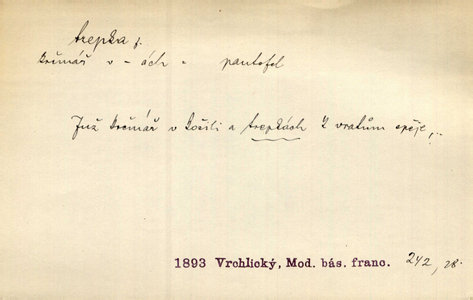 trepka f.
krčmář v – ách = pantofel
Již krčmář v košili a trepkách k vratům spěje,..
1893 Vrchlický, Mod. bás. franc. 242, 28.